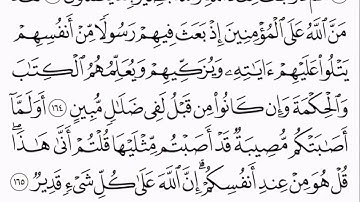 مَنَّ ٱللَّهُ عَلَى ٱلْمُؤْمِنِينَ إِذْ بَعَثَ فِيهِمْ رَسُولًا مِّنْ أَنفُسِهِمْ
يَتْلُوا۟ عَلَيْهِمْ ءَايَٰتِهِۦ وَيُزَكِّيهِمْ وَيُعَلِّمُهُمُ ٱلْكِتَٰبَ
وَٱلْحِكْمَةَ وَإِن كَانُوا۟ مِن قَبْلُ لَفِى ضَلَٰلٍ مُّبِينٍ ١٦٤ أَوَلَمَّآ
أَصَٰبَتْكُم مُّصِيبَةٌ قَدْ أَصَبْتُم مِّثْلَيْهَا قُلْتُمْ أَنَّىٰ هَٰذَا ۖ
قُلْ هُوَ مِنْ عِندِ أَنفُسِكُمْ ۗ إِنَّ ٱللَّهَ عَلَىٰ كُلِّ شَىْءٍ قَدِيرٌ ١٦٥